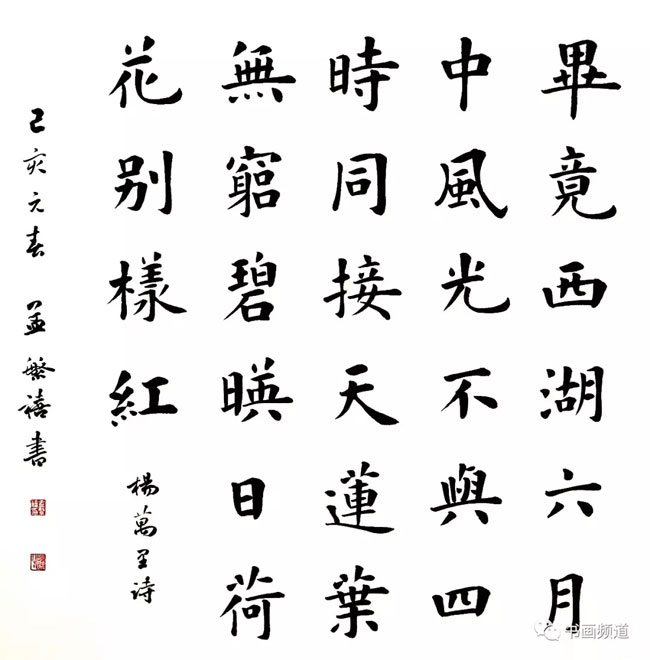 畢竟西湖六月
中風光不與四
時同接天蓮葉
無窮碧暎日荷
花别樣紅
楊萬里诗
己亥元春 孟繁禧書
书画频道